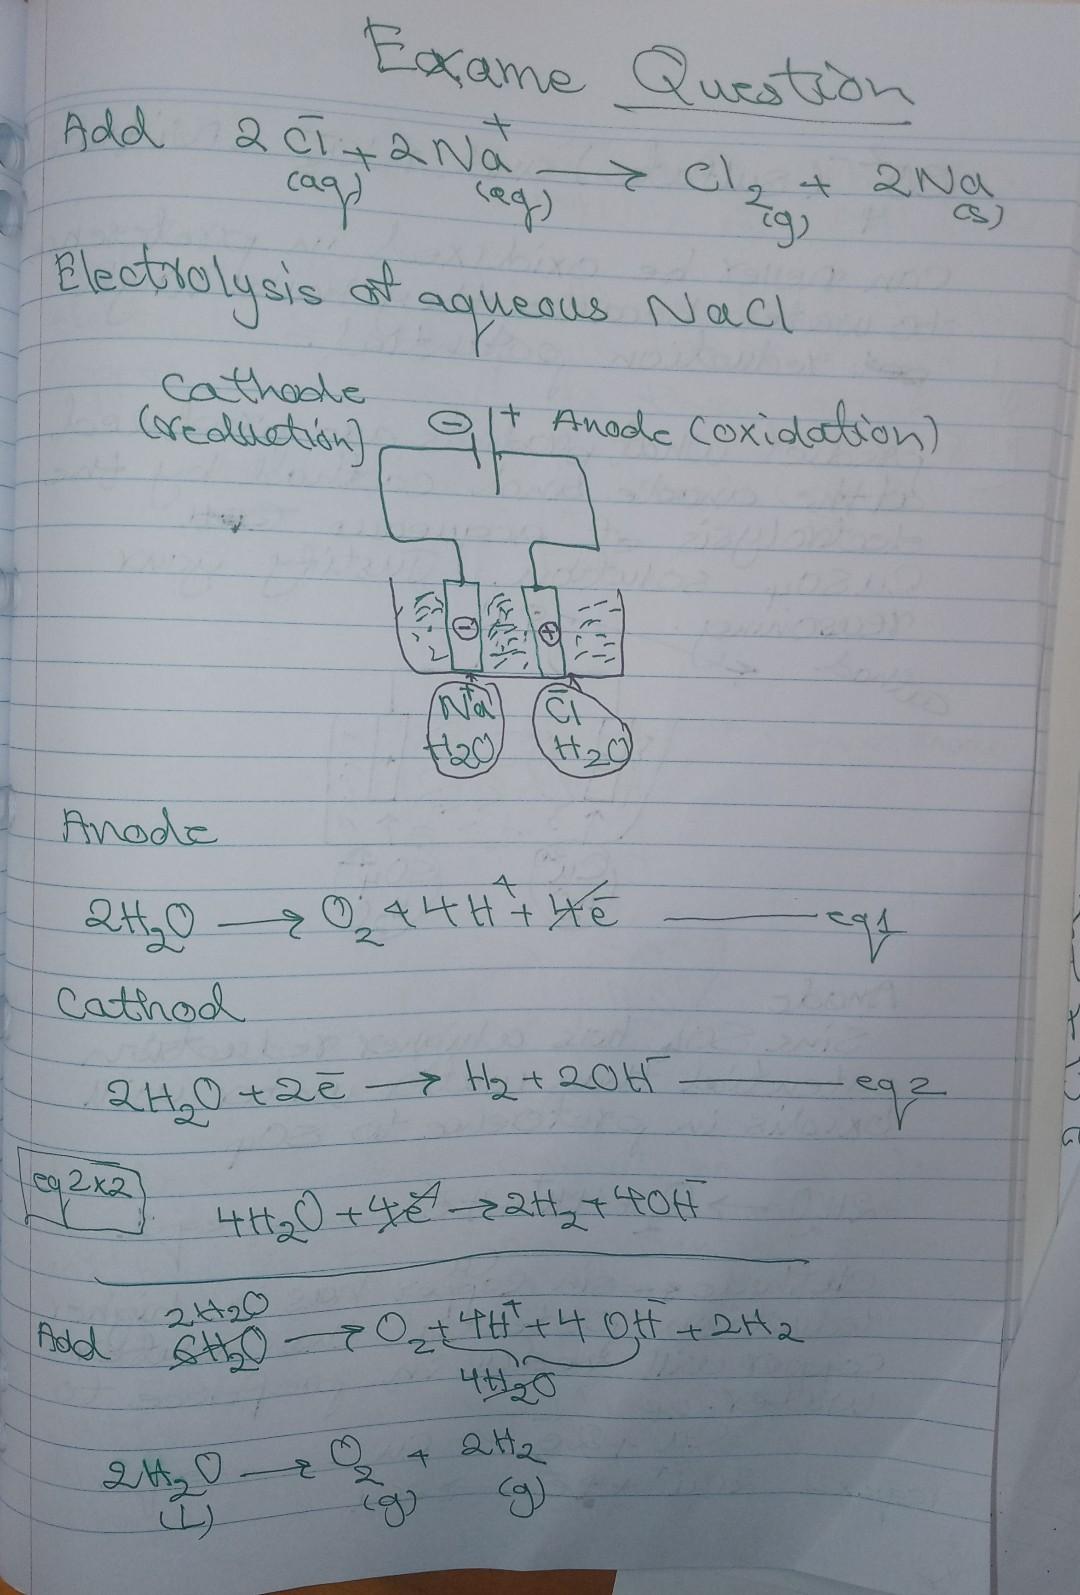 Exame Question
Add 2Cl⁻(aq) + 2Na⁺(eq) ⟶ Cl₂(g) + 2Na(s)
Electrolysis of aqueous NaCl
Cathode
(reduction)
⊖ + Anode (oxidation)
⊖ ⊕
Na⁺ Cl⁻
H2O H₂O
Anode
2H₂O ⟶ O₂ + 4H⁺ + 4e⁻ — eq1
Cathod
2H₂O + 2e⁻ ⟶ H₂ + 2OH⁻ — eq2
eq2x2
4H₂O + 4e⁻ → 2H₂ + 4OH⁻
2H2O
Add 6H₂O ⟶ O₂ + 4H⁺ + 4OH⁻ + 2H₂
4H₂O
2H₂O ⟶ O₂ + 2H₂
(L) (g) (g)